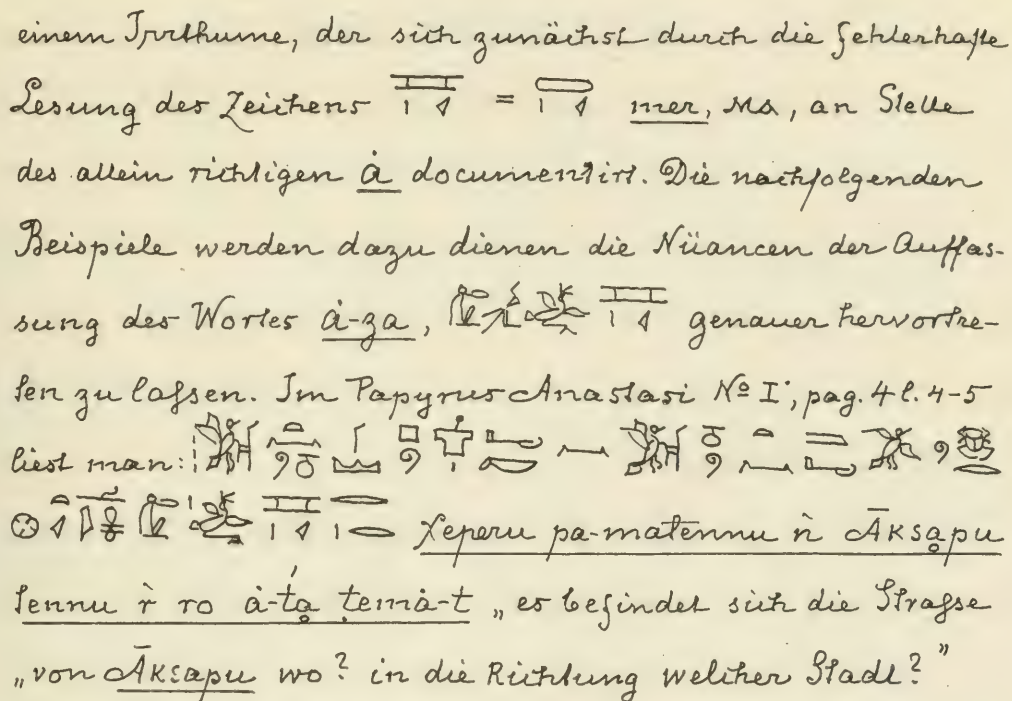 einem Irrthume, der sich zunächst durch die fehlerhafte
Lesung des Zeichens = mer, ma, an Stelle
des allein richtigen ȧ documentirt. Die nachfolgenden
Beispiele werden dazu dienen die Nüancen der Auffas-
sung des Wortes ȧ-za, genauer hervortre-
ten zu laſsen. Im Papyrus Anastasi № I, pag. 4 l. 4-5
liest man:
χeperu pa-matennu ǹ Āksapu
tennu r̀ ro ȧ-ta temȧ-t „es befindet sich die Straſse
„von Āksapu wo? in die Richtung welcher Stadt?"